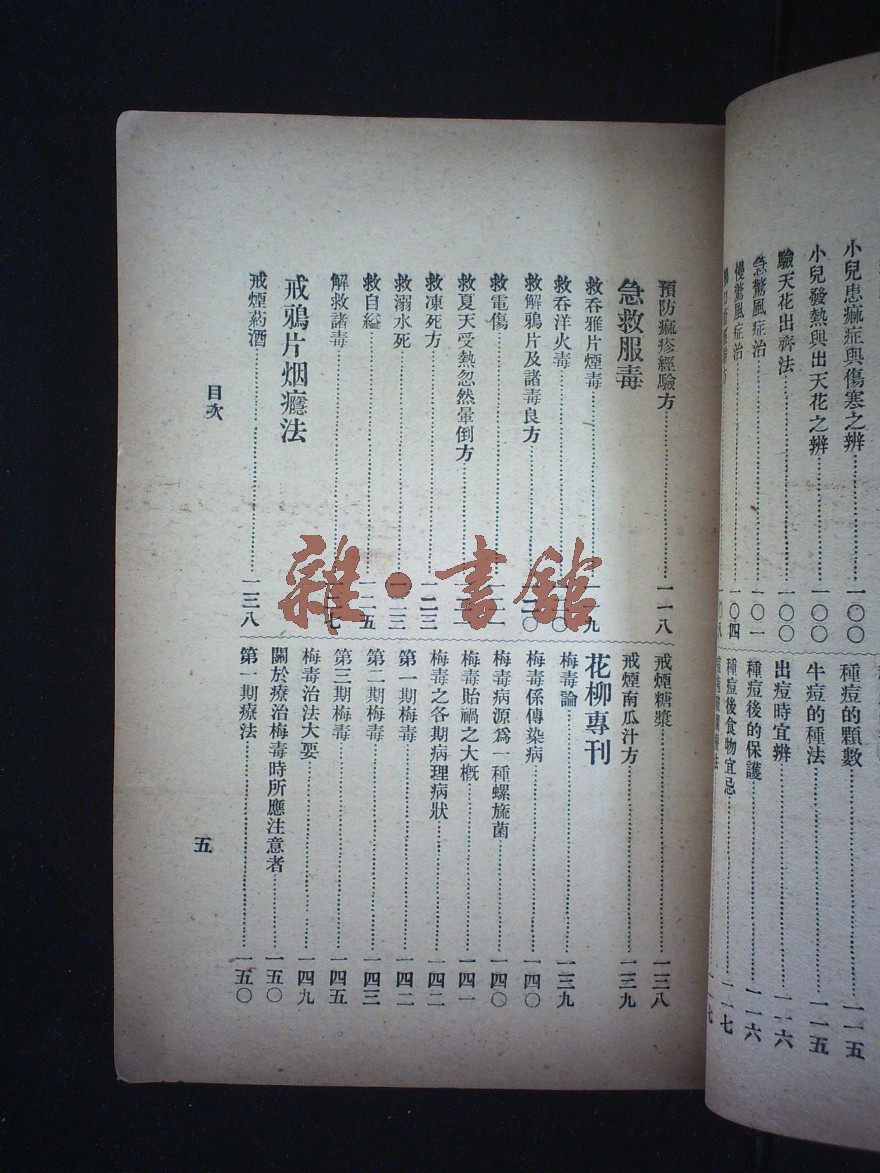 小兒患痲症與傷寒之辨……一〇〇
小兒發熱與出天花之辨……一〇〇
驗天花出齊法……一〇〇
急驚風症治……一〇一
慢驚風症治……一〇四
種痘的顆數……一一五
牛痘的種法……一一五
出痘時宜辨……一一六
種痘後的保護……一一六
種痘後食物宜忌……一一七
預防痲疹經驗方……一一八
急救服毒
救呑雅片煙毒……九
救呑洋火毒……〇
救解鴉片及諸毒良方……〇
救電傷……
救夏天受熱忽然暈倒方……
救凍死方……一二三
救溺水死……三
救自縊……五
解救諸毒……七
戒鴉片烟癮法
戒煙葯酒……一三八
戒煙糖漿……一三八
戒煙南瓜汁方……一三九
花柳專刊
梅毒論……一三九
梅毒係傳染病……一四〇
梅毒病源爲一種螺旋菌……一四〇
梅毒貽禍之大槪……一四一
梅毒之各期病理病狀……一四二
第一期梅毒……一四二
第二期梅毒……一四三
第三期梅毒……一四五
梅毒治法大要……一四九
關於療治梅毒時所應注意者……一五〇
第一期療法……一五〇
目次
五
雜·書館